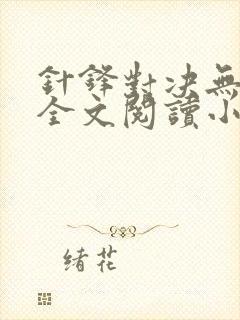 針鋒對決無
全文閱讀小
緒花